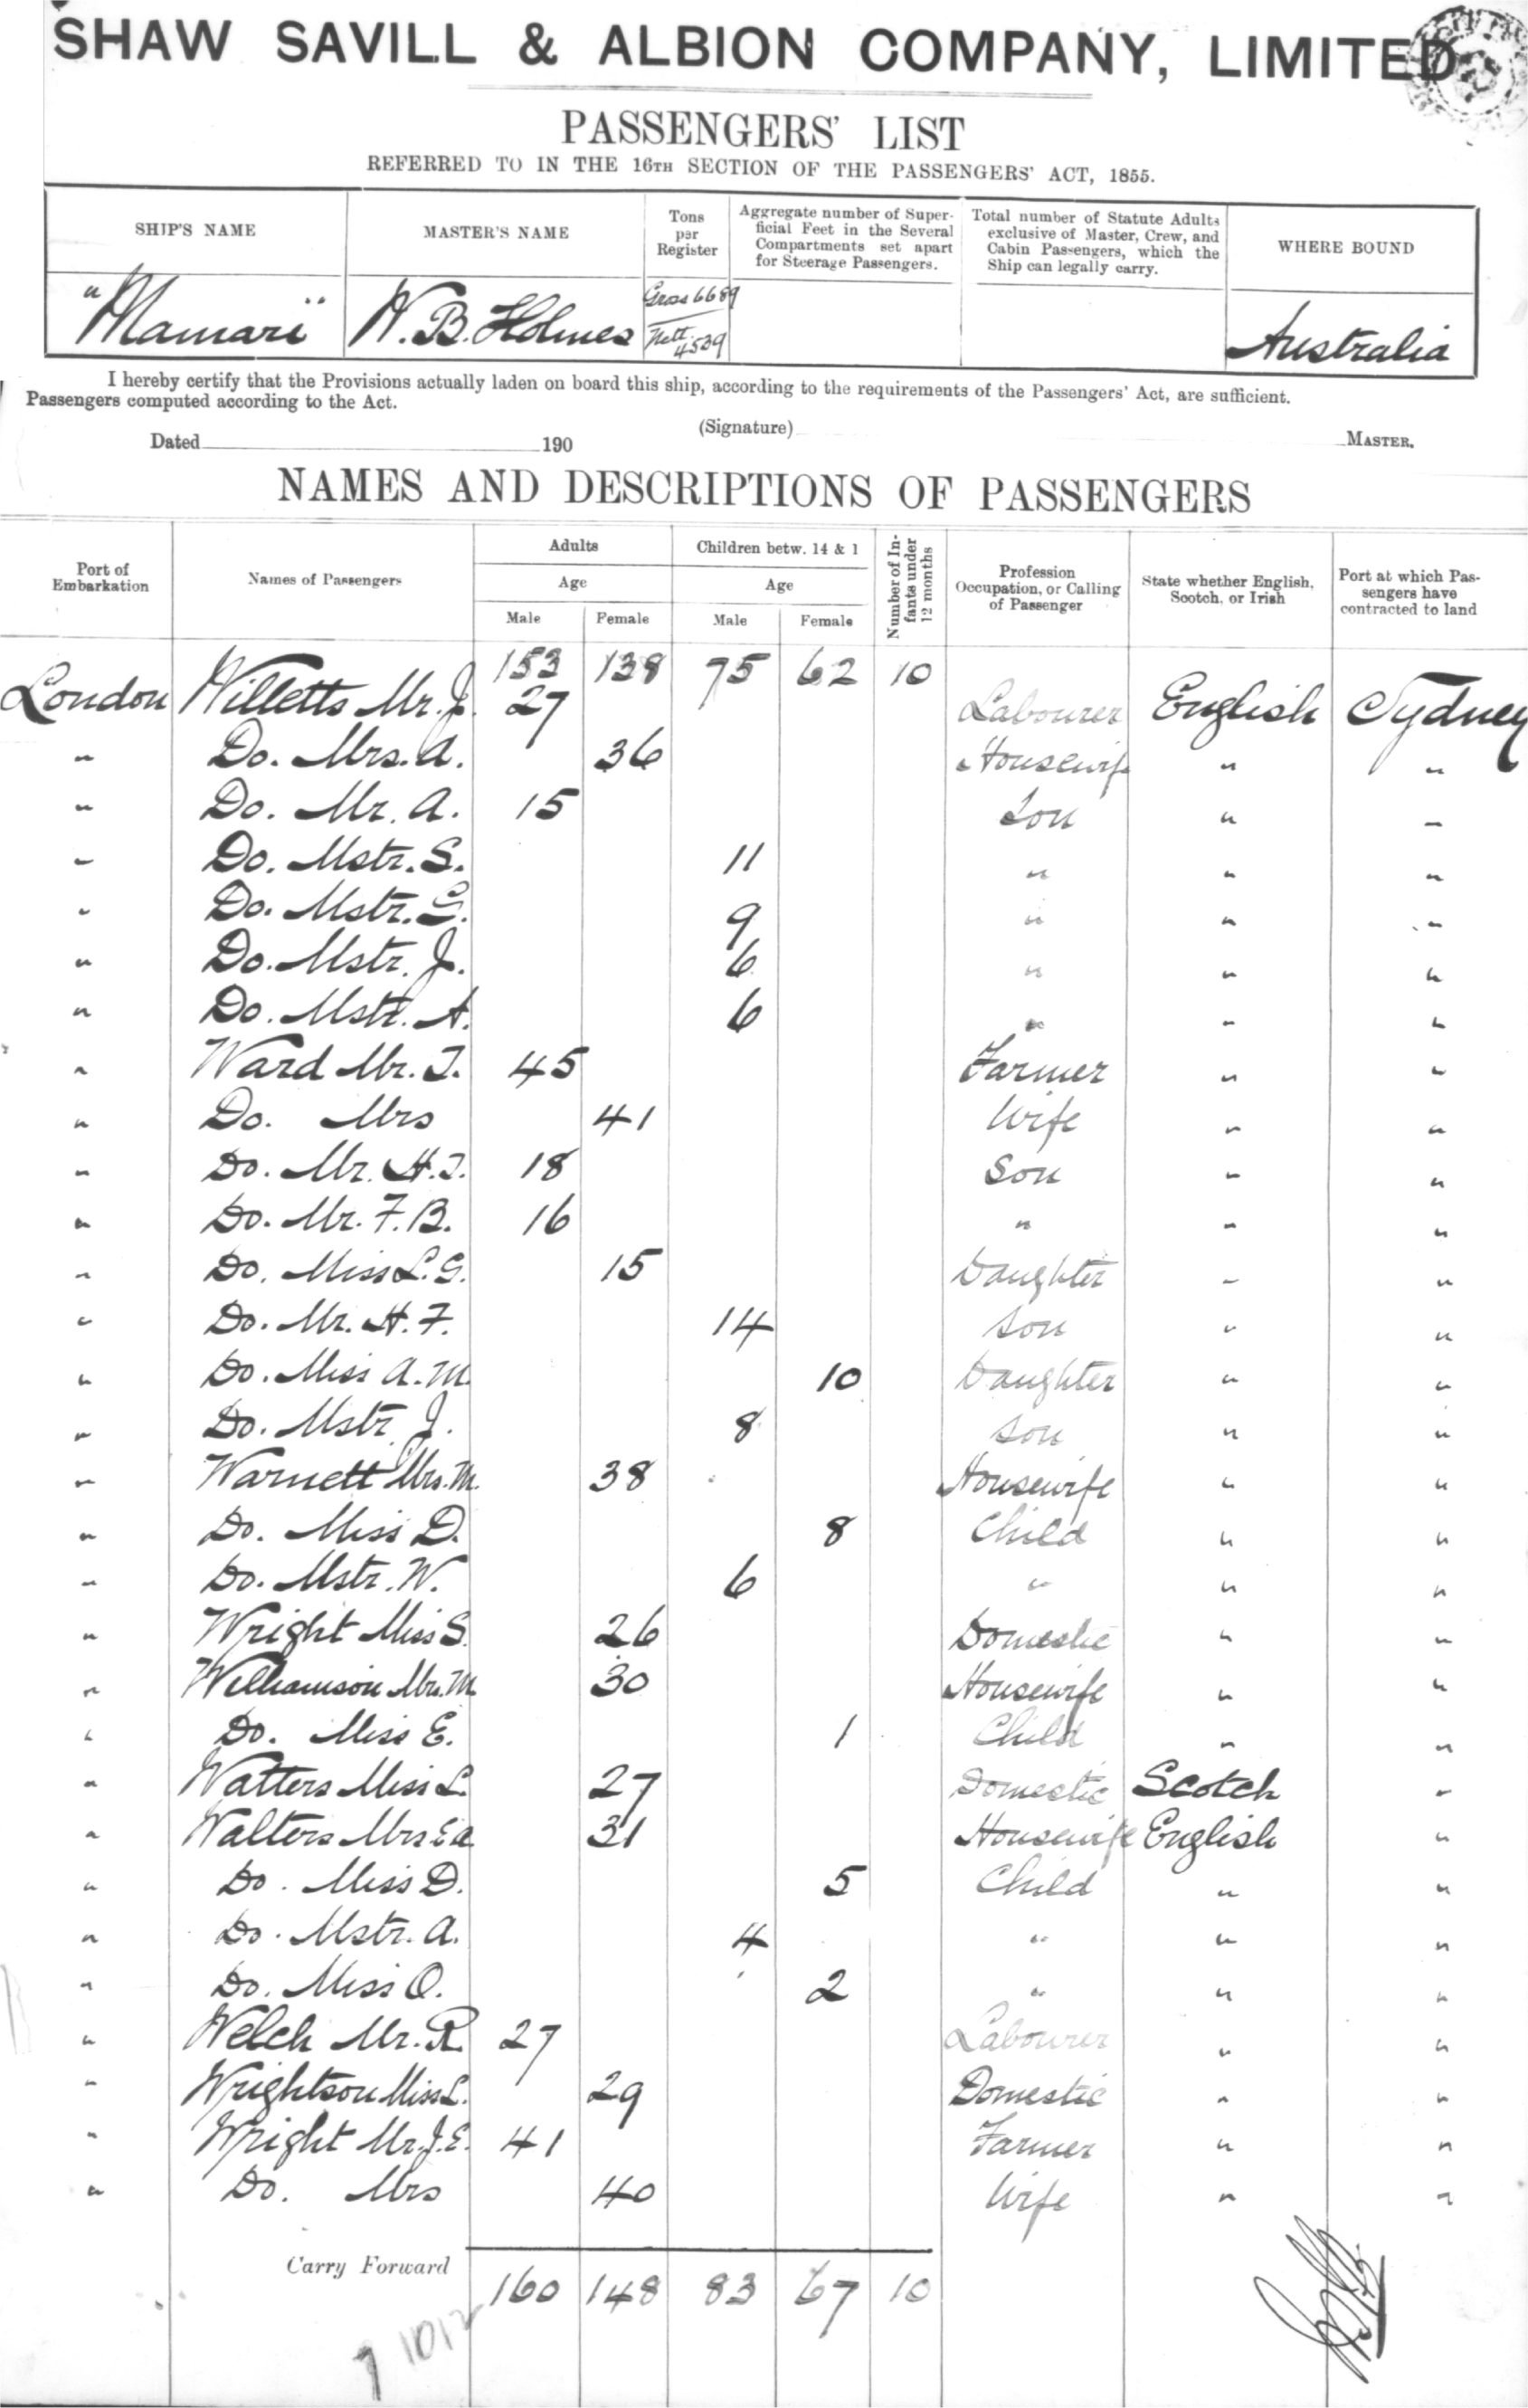 SHAW SAVILL & ALBION COMPANY, LIMITED
PASSENGERS' LIST
REFERRED TO IN THE 16TH SECTION OF THE PASSENGERS' ACT, 1855.
SHIP'S NAME MASTER'S NAME Tons per Register Aggregate number of Superficial Feet in the Several Compartments set apart for Steerage Passengers. Total number of Statute Adults exclusive of Master, Crew, and Cabin Passengers, which the Ship can legally carry. WHERE BOUND
"Mamari" W. B. Holmes Gross 6689 Nett 4539 Australia
I hereby certify that the Provisions actually laden on board this ship, according to the requirements of the Passengers' Act, are sufficient.
Passengers computed according to the Act.
(Signature)
Dated 190 MASTER.
NAMES AND DESCRIPTIONS OF PASSENGERS
Port of Embarkation Names of Passengers Adults Age Male Female Children betw. 14 & 1 Age Male Female Number of Infants under 12 months Profession Occupation, or Calling of Passenger State whether English, Scotch, or Irish Port at which Passengers have contracted to land
153 138 75 62 10
London Willetts Mr. J. 27 Labourer English Sydney
" Do. Mrs. A. 36 Housewife " "
" Do. Mr. A. 15 Son " "
" Do. Mstr. S. 11 " " "
" Do. Mstr. G. 9 " " "
" Do. Mstr. J. 6 " " "
" Do. Mstr. A. 6 " " "
" Ward Mr. T. 45 Farmer " "
" Do. Mrs 41 Wife " "
" Do. Mr. H. T. 18 Son " "
" Do. Mr. F. B. 16 " " "
" Do. Miss L. G. 15 Daughter " "
" Do. Mr. H. F. 14 Son " "
" Do. Miss A. M. 10 Daughter " "
" Do. Mstr J. 8 Son " "
" Warnett Mrs. M. 38 Housewife " "
" Do. Miss D. 8 Child " "
" Do. Mstr. W. 6 " " "
" Wright Miss S. 26 Domestic " "
" Williamson Mrs. M 30 Housewife " "
" Do. Miss E. 1 Child " "
" Watters Miss L. 27 Domestic Scotch "
" Walters Mrs E A 31 Housewife English "
" Do. Miss D. 5 Child " "
" Do. Mstr. A. 4 " " "
" Do. Miss O. 2 " " "
" Welch Mr. R. 27 Labourer " "
" Wrightson Miss L. 29 Domestic " "
" Wright Mr. J. E. 41 Farmer " "
" Do. Mrs 40 Wife " "
Carry Forward 160 148 83 67 10